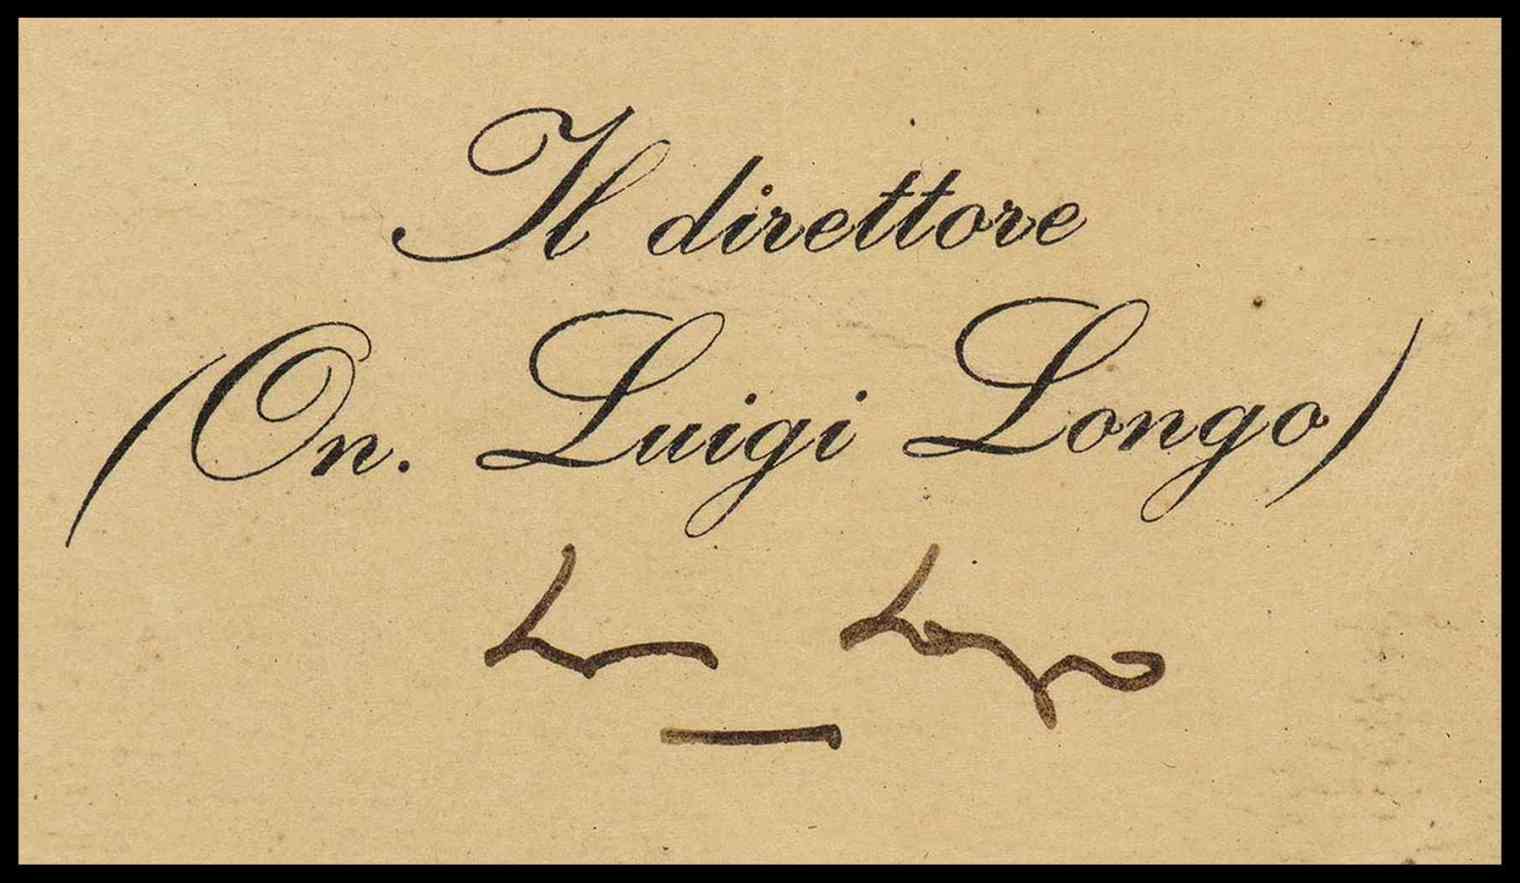 Il direttore
(On. Luigi Longo)
Longo